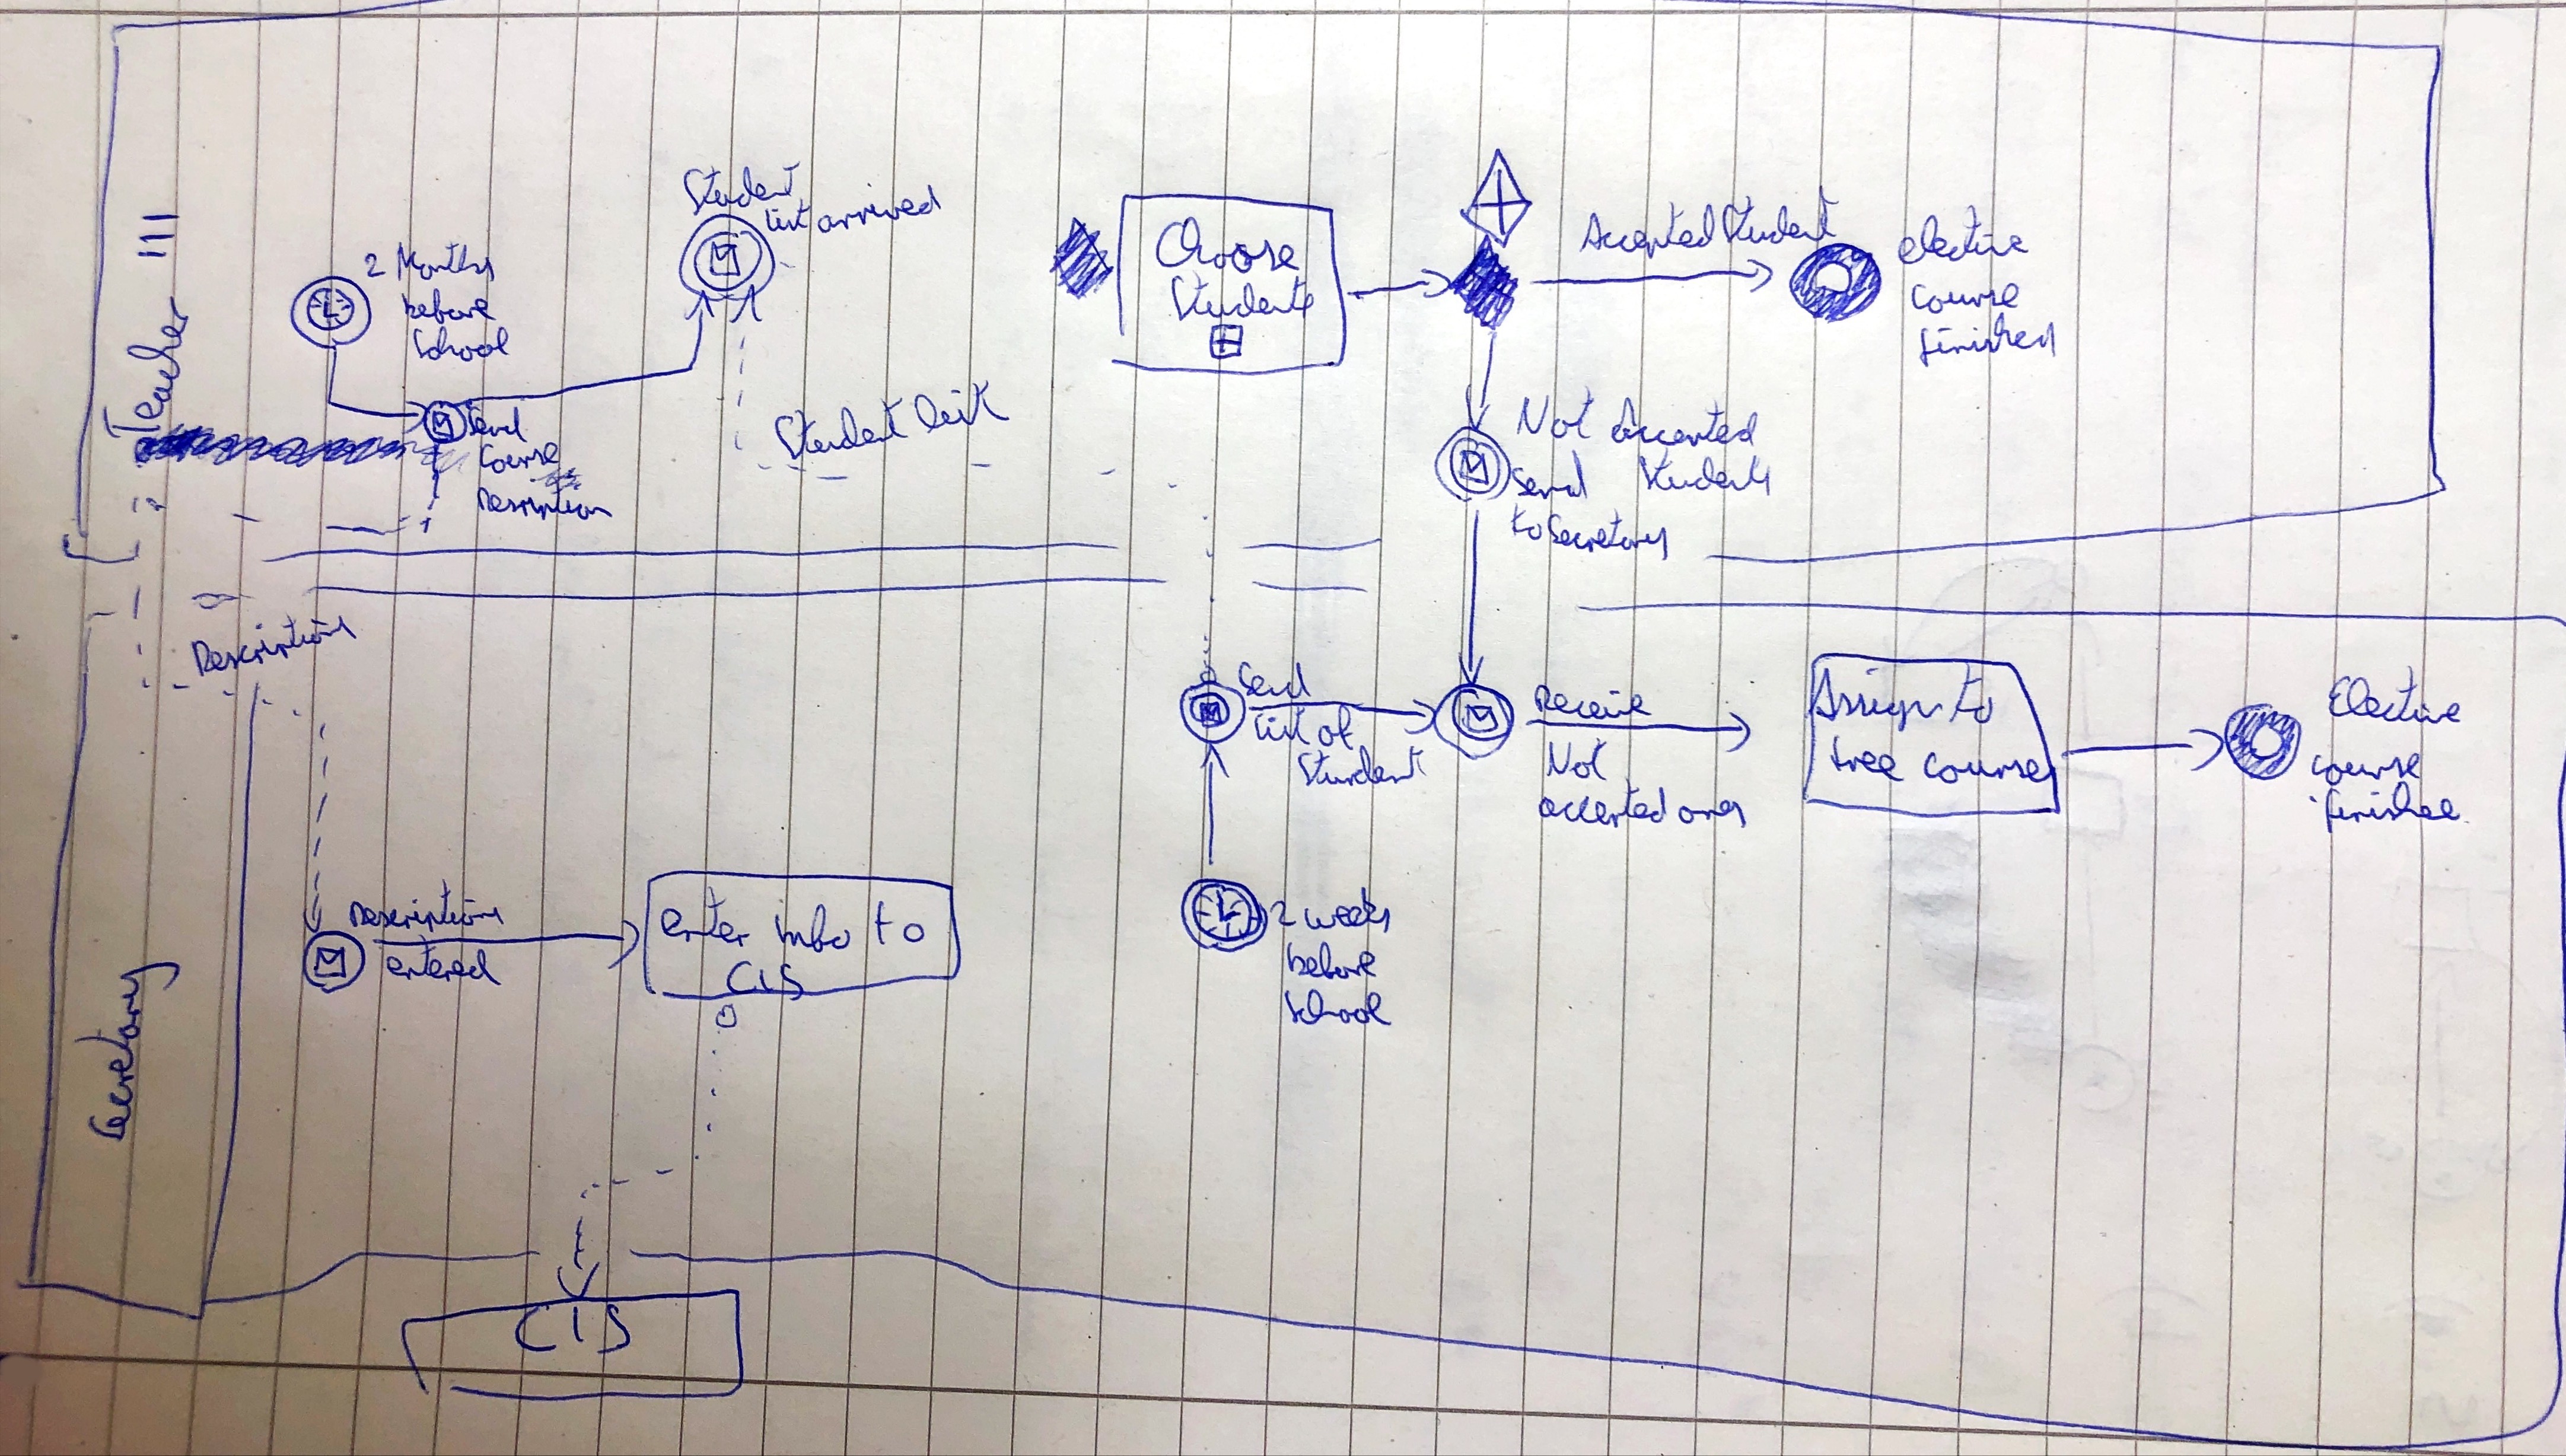 Teacher III
2 Months
before
School
Send
Course
Description
Student
list arrived
Student list
Choose
Students
Accepted Student
elective
course
finished
Not accepted
Send Students
to Secretary
Descriptions
Secretary
Descriptions
entered
enter info to
CIS
CIS
Send
list of
Student
2 weeks
before
School
Receive
Not
accepted ones
Assign to
free course
Elective
course
finished